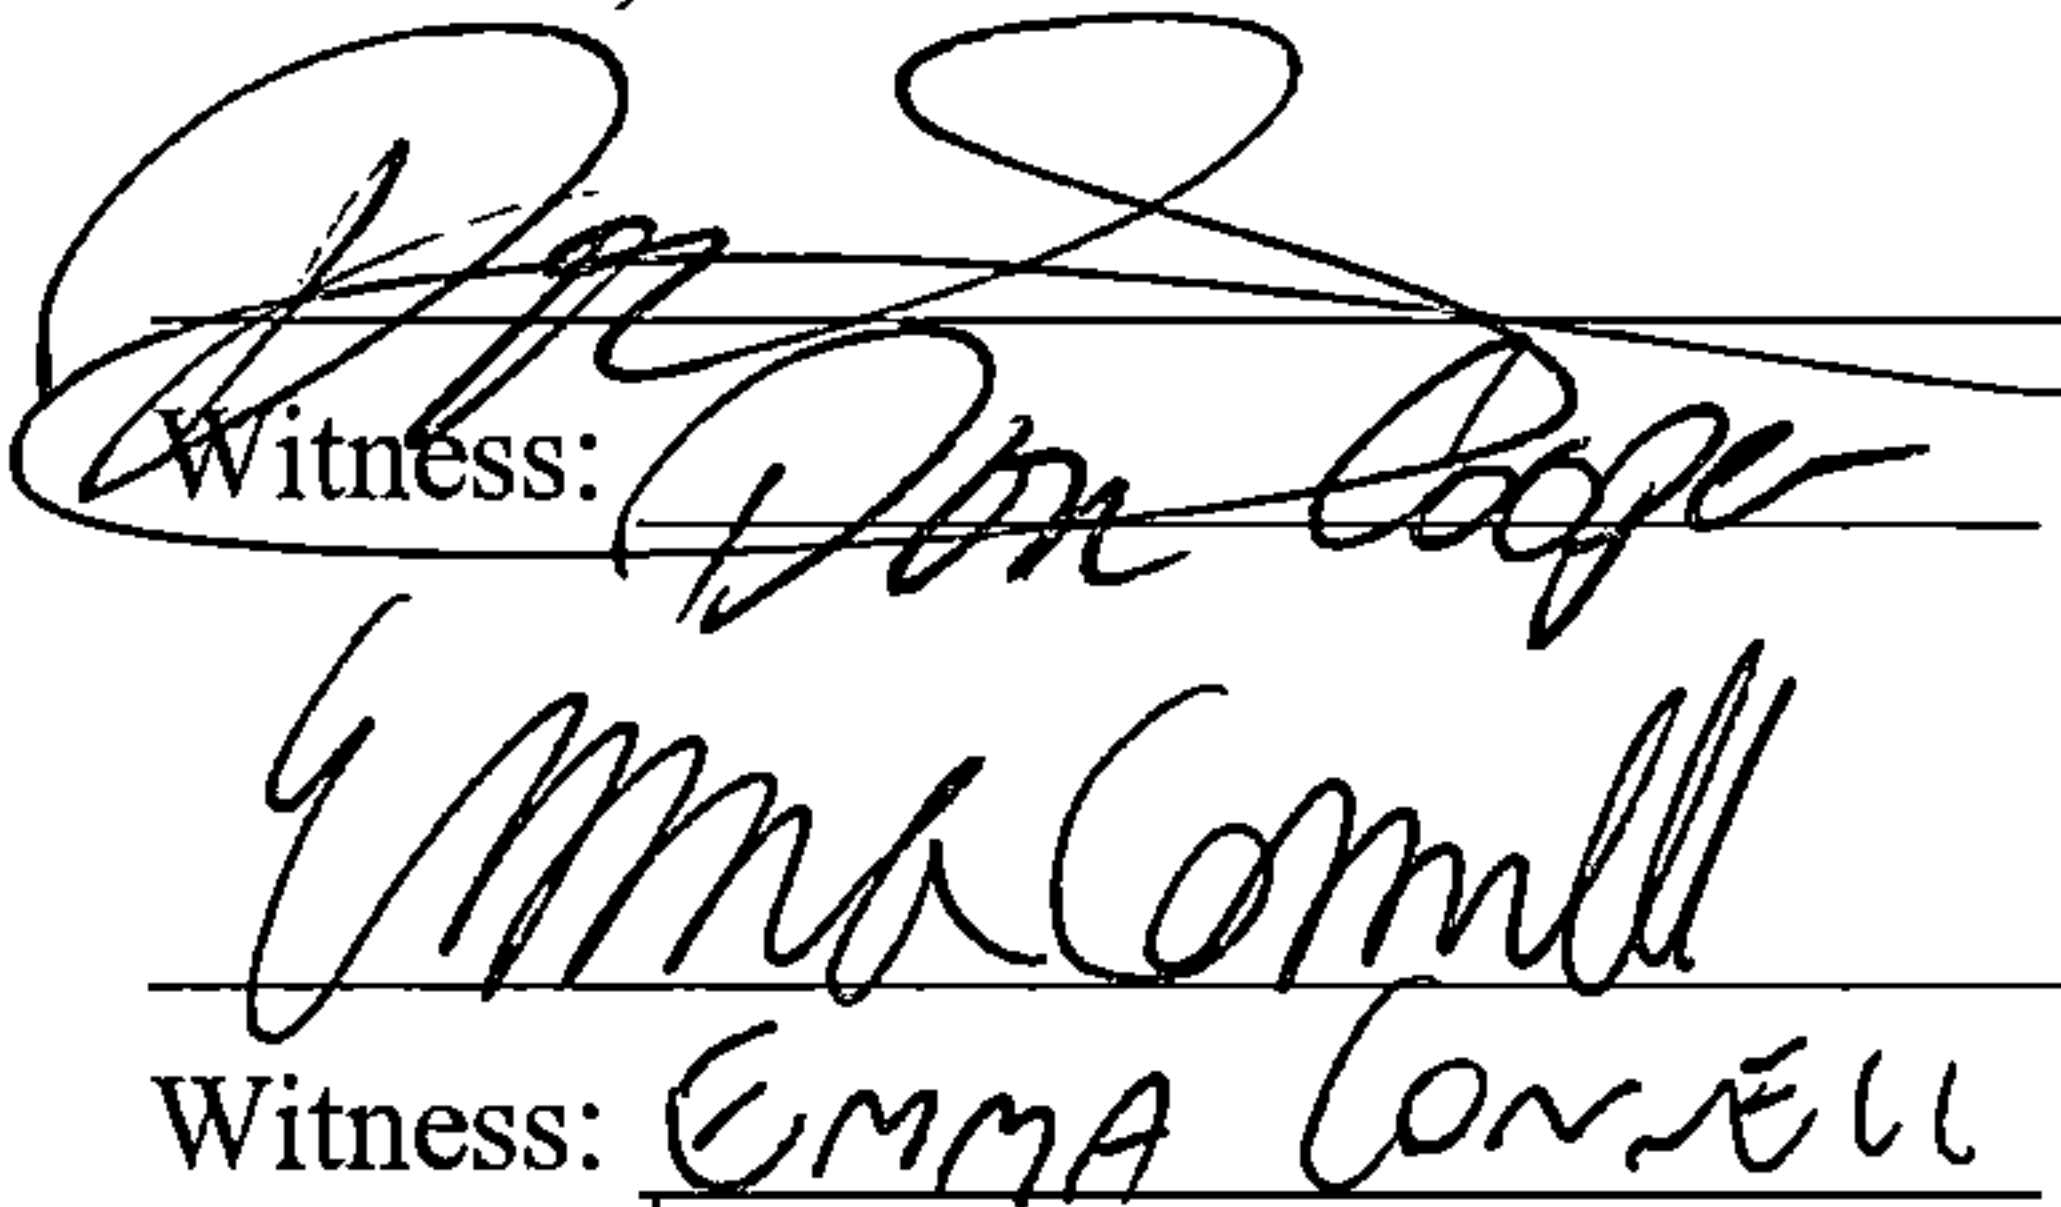 Witness: Don Cooper
Emma Connell
Witness: EMMA CONNELL